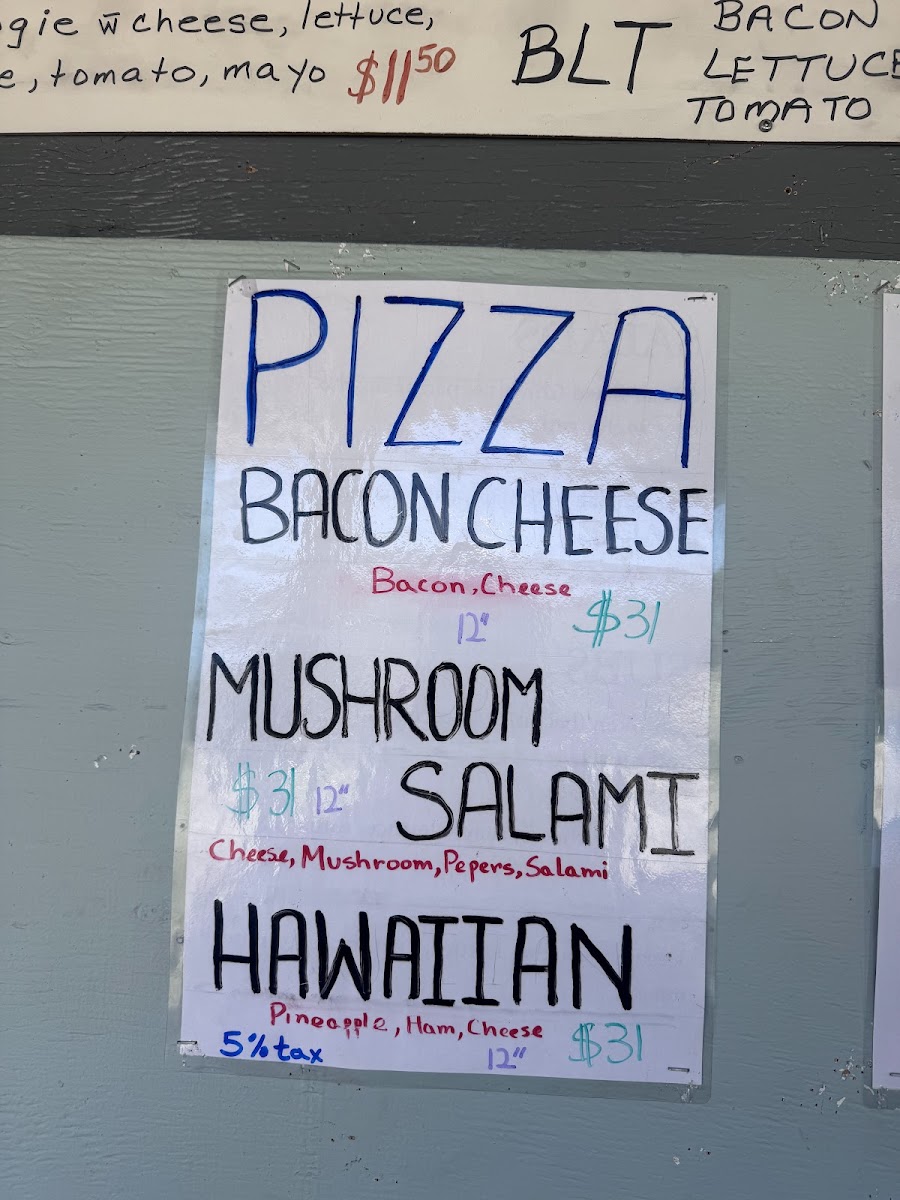 gie w̄ cheese, lettuce,
e, tomato, mayo $11.50
BLT
BACON
LETTUCE
TOMATO
PIZZA
BACON CHEESE
Bacon, Cheese
12" $31
MUSHROOM
$31 12" SALAMI
Cheese, Mushroom, Pepers, Salami
HAWAIIAN
Pineapple, Ham, Cheese
5% tax 12" $31